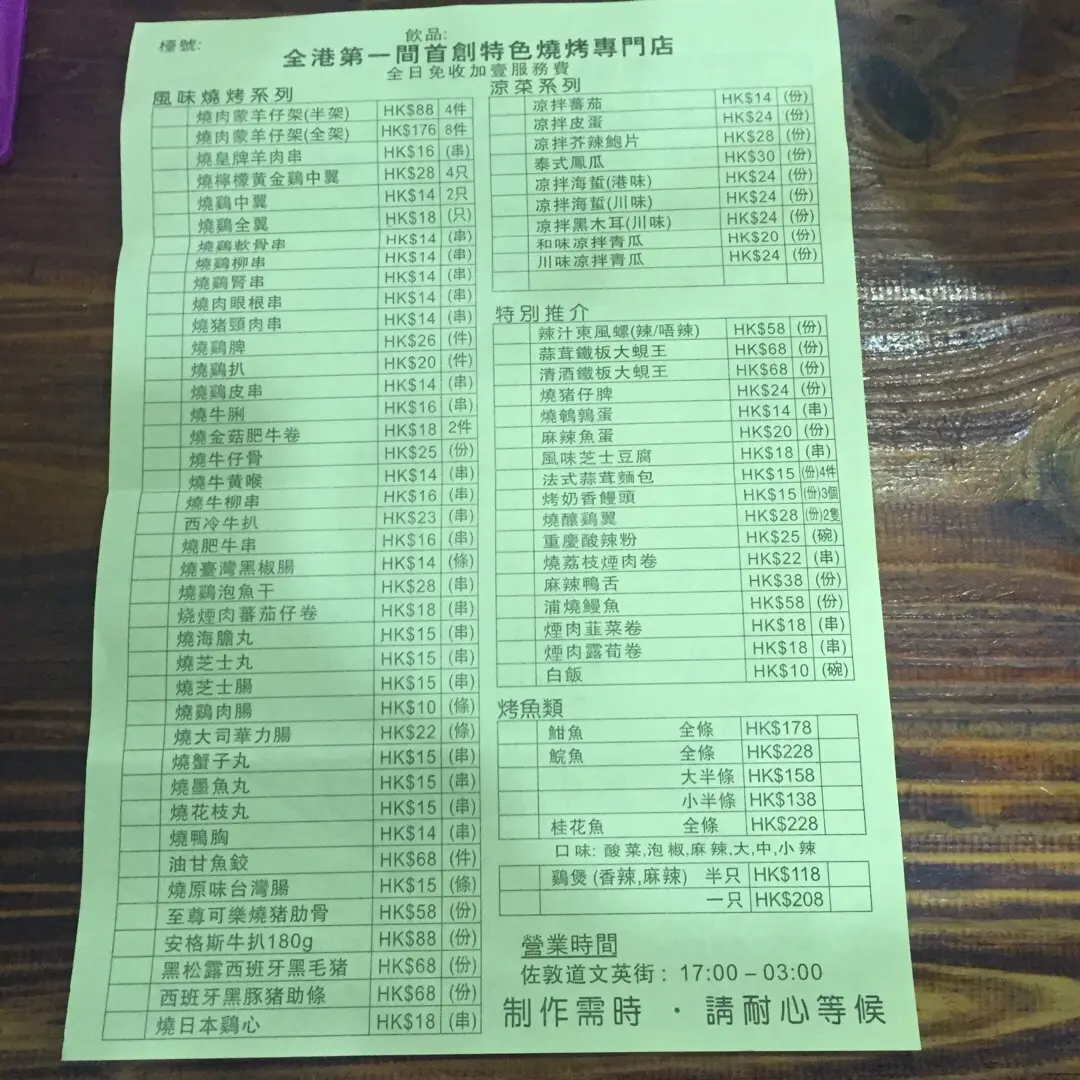 檯號:
飲品:
全港第一間首創特色燒烤專門店
全日免收加壹服務費
風味燒烤系列
燒肉蒙羊仔架(半架) HK$88 4件
燒肉蒙羊仔架(全架) HK$176 8件
燒皇牌羊肉串 HK$16 (串)
燒檸檬黄金鷄中翼 HK$28 4只
燒鷄中翼 HK$14 2只
燒鷄全翼 HK$18 (只)
燒鷄軟骨串 HK$14 (串)
燒鷄柳串 HK$14 (串)
燒鷄腎串 HK$14 (串)
燒肉眼根串 HK$14 (串)
燒猪頸肉串 HK$14 (串)
燒鷄脾 HK$26 (件)
燒鷄扒 HK$20 (件)
燒鷄皮串 HK$14 (串)
燒牛脷 HK$16 (串)
燒金菇肥牛卷 HK$18 2件
燒牛仔骨 HK$25 (份)
燒牛黄喉 HK$14 (串)
燒牛柳串 HK$16 (串)
西冷牛扒 HK$23 (串)
燒肥牛串 HK$16 (串)
燒臺灣黑椒腸 HK$14 (條)
燒鷄泡魚干 HK$28 (串)
烧煙肉蕃茄仔卷 HK$18 (串)
燒海膽丸 HK$15 (串)
燒芝士丸 HK$15 (串)
燒芝士腸 HK$15 (串)
燒鷄肉腸 HK$10 (條)
燒大司華力腸 HK$22 (條)
燒蟹子丸 HK$15 (串)
燒墨魚丸 HK$15 (串)
燒花枝丸 HK$15 (串)
燒鴨胸 HK$14 (串)
油甘魚鉸 HK$68 (件)
燒原味台灣腸 HK$15 (條)
至尊可樂燒猪肋骨 HK$58 (份)
安格斯牛扒180g HK$88 (份)
黑松露西班牙黑毛猪 HK$68 (份)
西班牙黑豚猪助條 HK$68 (份)
燒日本鷄心 HK$18 (串)
涼菜系列
凉拌蕃茄 HK$14 (份)
凉拌皮蛋 HK$24 (份)
凉拌芥辣鮑片 HK$28 (份)
泰式鳳瓜 HK$30 (份)
凉拌海蜇(港味) HK$24 (份)
凉拌海蜇(川味) HK$24 (份)
凉拌黑木耳(川味) HK$24 (份)
和味凉拌青瓜 HK$20 (份)
川味凉拌青瓜 HK$24 (份)
特別推介
辣汁東風螺(辣/唔辣) HK$58 (份)
蒜茸鐵板大蜆王 HK$68 (份)
清酒鐵板大蜆王 HK$68 (份)
燒猪仔脾 HK$24 (份)
燒鵪鶉蛋 HK$14 (串)
麻辣魚蛋 HK$20 (份)
風味芝士豆腐 HK$18 (串)
法式蒜茸麵包 HK$15 (份)4件
烤奶香饅頭 HK$15 (份)3個
燒釀鷄翼 HK$28 (份)2隻
重慶酸辣粉 HK$25 (碗)
燒荔枝煙肉卷 HK$22 (串)
麻辣鴨舌 HK$38 (份)
浦燒鰻魚 HK$58 (份)
煙肉韮菜卷 HK$18 (串)
煙肉露荀卷 HK$18 (串)
白飯 HK$10 (碗)
烤魚類
魽魚 全條 HK$178
鯇魚 全條 HK$228
大半條 HK$158
小半條 HK$138
桂花魚 全條 HK$228
口味: 酸菜,泡椒,麻辣,大,中,小辣
鷄煲(香辣,麻辣) 半只 HK$118
一只 HK$208
營業時間
佐敦道文英街: 17:00 – 03:00
制作需時 · 請耐心等候